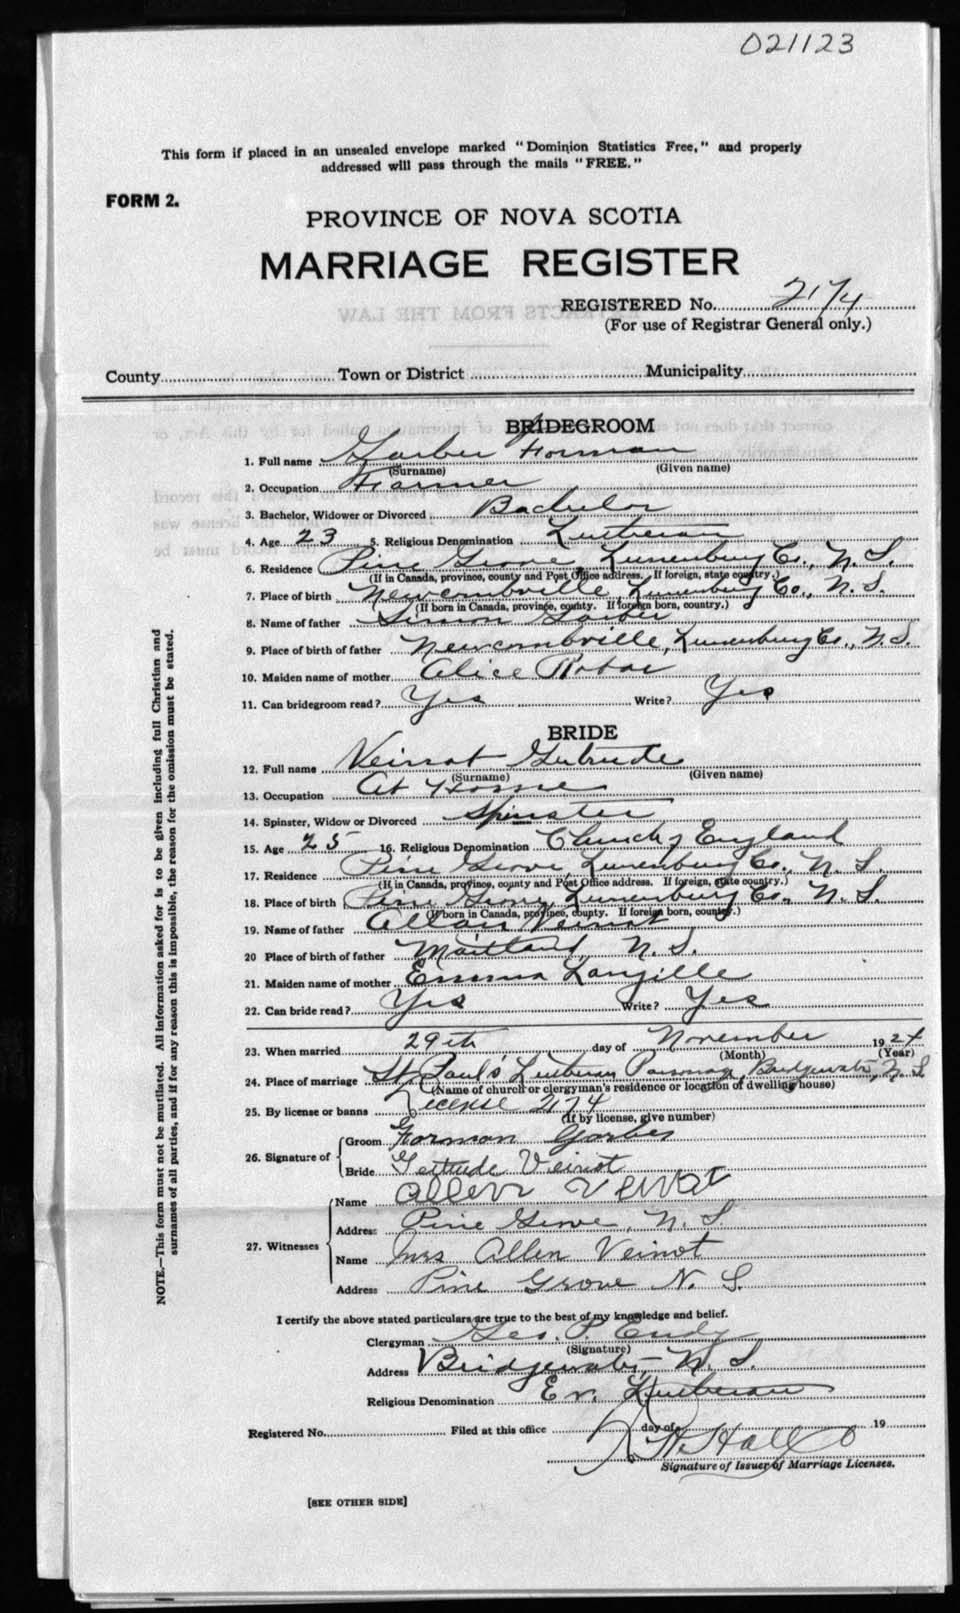 021123
This form if placed in an unsealed envelope marked "Dominion Statistics Free," and properly
addressed will pass through the mails "FREE."
FORM 2.
PROVINCE OF NOVA SCOTIA
MARRIAGE REGISTER
REGISTERED No. 2174
(For use of Registrar General only.)
County Town or District Municipality
BRIDEGROOM
1. Full name Garber Forman
(Surname) (Given name)
2. Occupation Farmer
3. Bachelor, Widower or Divorced Bachelor
4. Age 23 5. Religious Denomination Lutheran
6. Residence Pine Grove, Lunenburg Co., N. S.
(If in Canada, province, county and Post Office address. If foreign, state country.)
7. Place of birth Newcombville, Lunenburg Co., N. S.
(If born in Canada, province, county. If foreign born, country.)
8. Name of father Simon Garber
9. Place of birth of father Newcombville, Lunenburg Co., N. S.
10. Maiden name of mother Alice Robar
11. Can bridegroom read? Yes Write? Yes
BRIDE
12. Full name Veinot Gertrude
(Surname) (Given name)
13. Occupation At Home
14. Spinster, Widow or Divorced Spinster
15. Age 25 16. Religious Denomination Church of England
17. Residence Pine Grove, Lunenburg Co., N. S.
(If in Canada, province, county and Post Office address. If foreign, state country.)
18. Place of birth Pine Grove, Lunenburg Co., N. S.
(If born in Canada, province, county. If foreign born, country.)
19. Name of father Allan Veinot
20 Place of birth of father Maitland, N. S.
21. Maiden name of mother Emma Langille
22. Can bride read? Yes Write? Yes
23. When married 29th day of November 1924
(Month) (Year)
24. Place of marriage St. Paul's Lutheran Parsonage, Bridgewater, N. S.
(Name of church or clergyman's residence or location of dwelling house)
25. By license or banns License 2174
(If by license, give number)
26. Signature of Groom Forman Garber
Bride Gertrude Veinot
27. Witnesses Name Allen Veinot
Address Pine Grove, N. S.
Name Mrs Allen Veinot
Address Pine Grove N. S.
I certify the above stated particulars are true to the best of my knowledge and belief.
Clergyman Geo. P. Endy
(Signature)
Address Bridgewater, N. S.
Religious Denomination Ev. Lutheran
Registered No. Filed at this office day of 19
Hall
Signature of Issuer of Marriage Licenses.
[SEE OTHER SIDE]
NOTE.—This form must not be mutilated. All information asked for is to be given including full Christian and
surnames of all parties, and if for any reason this is impossible, the reason for the omission must be stated.